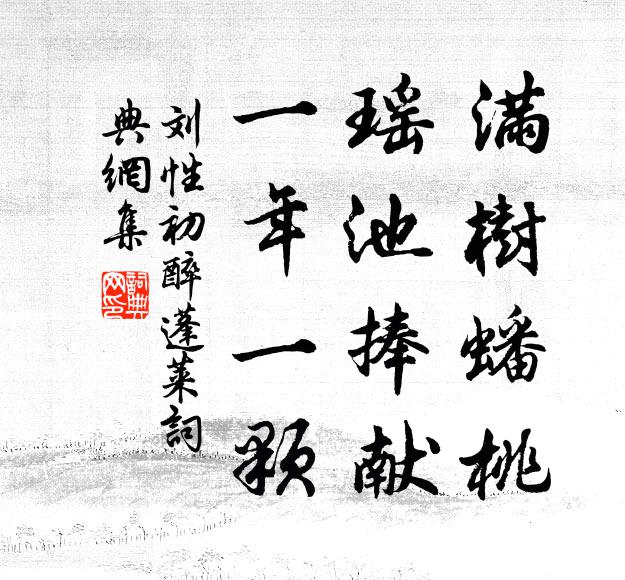 满樹蟠桃
瑶池捧献
一年一颗
刘性初醉蓬莱詞
典網集
詞典
网印